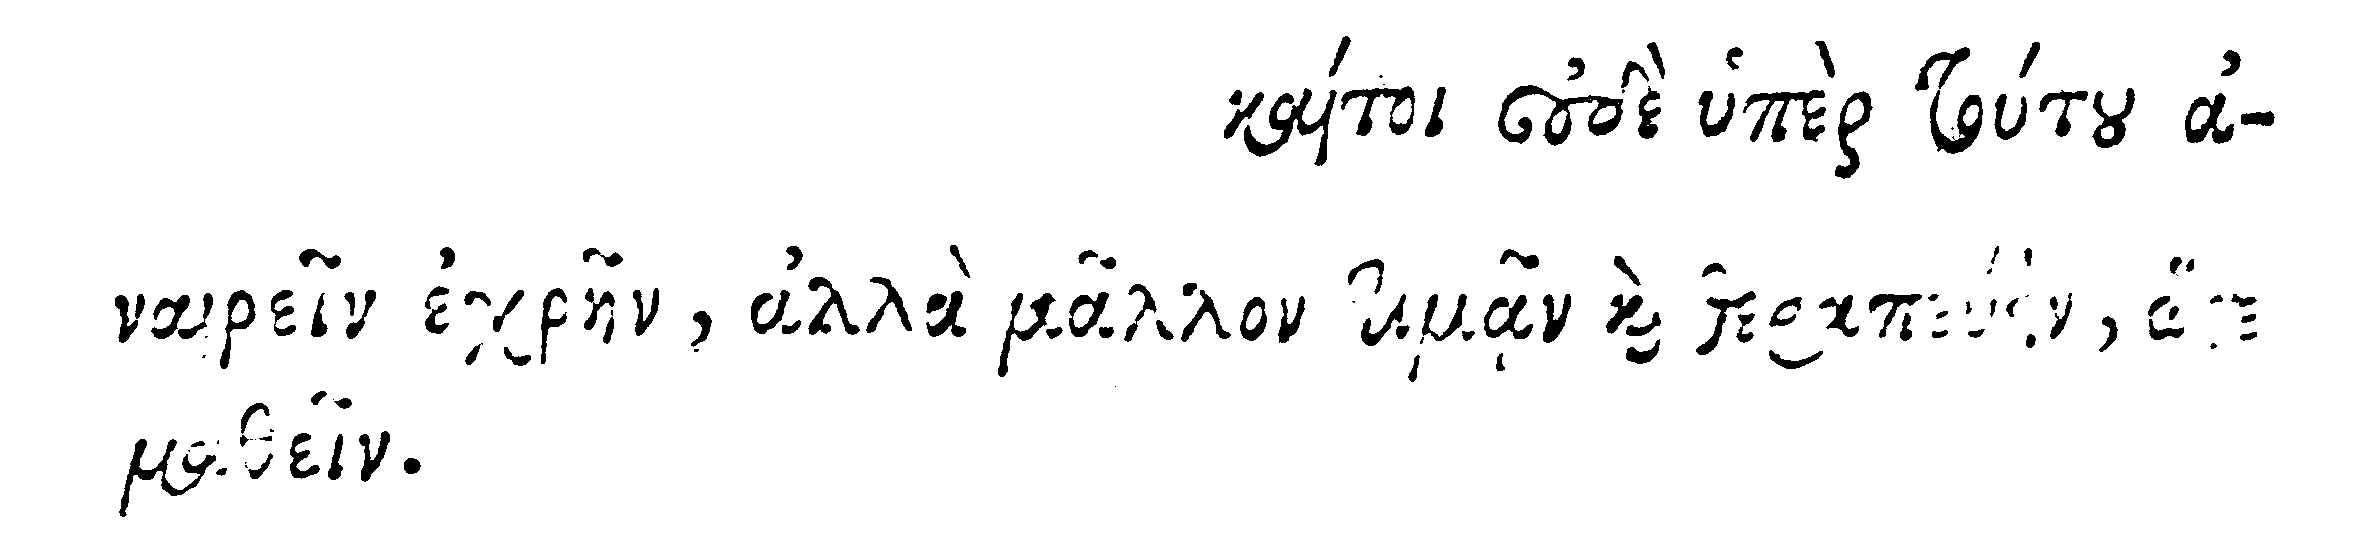 καίτοι οὐδὲ ὑπὲρ τούτου ἀ-
ναιρεῖν ἐχρῆν, ἀλλὰ μᾶλλον τιμᾶν καὶ θεραπεύειν,
μαθεῖν.